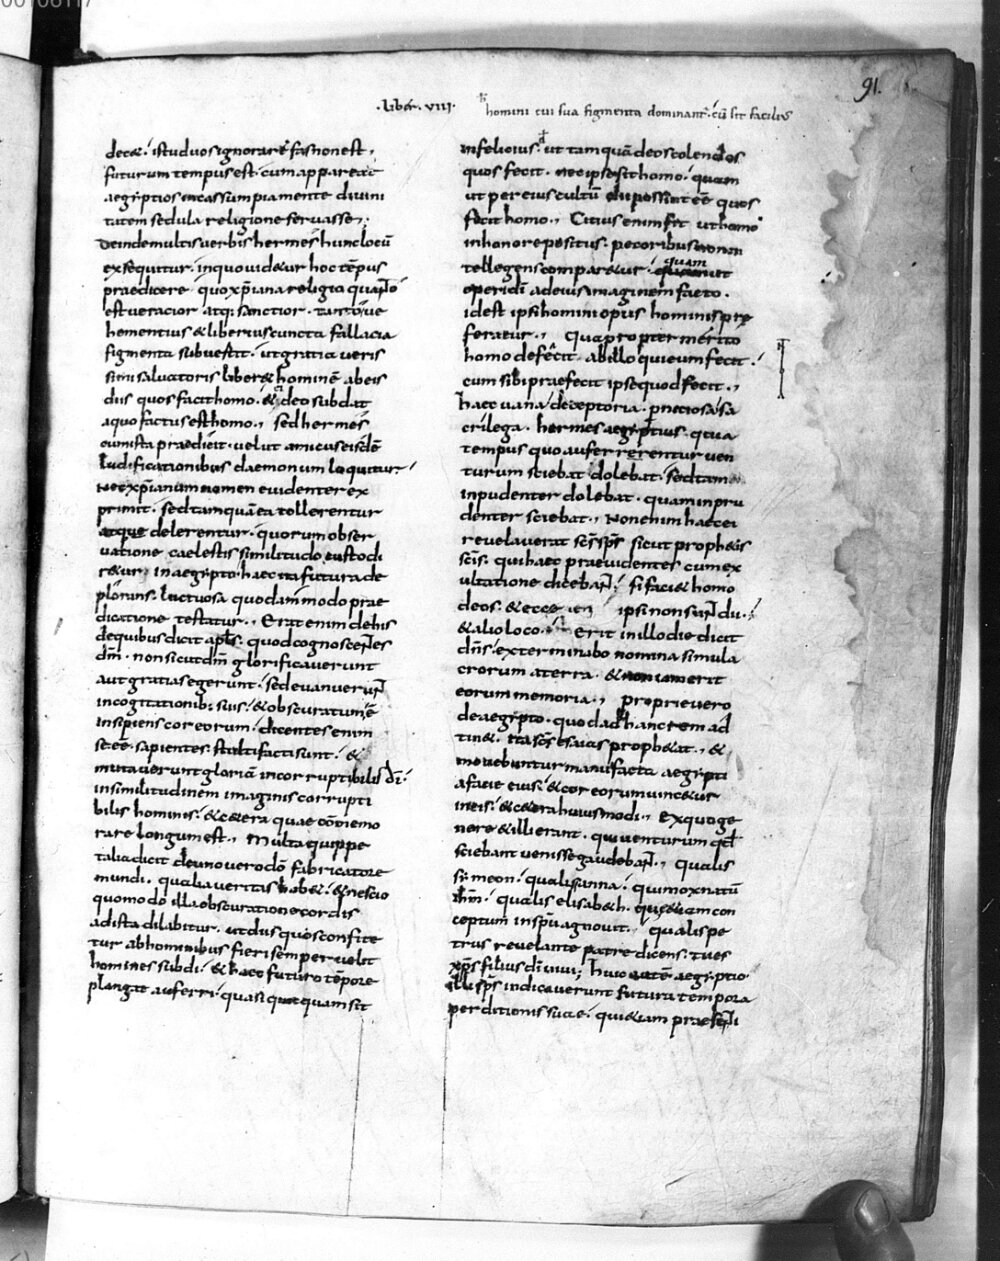 91.
· liber · VIIII ·
homini cui sua figmenta dominant̄ · cū sit facilius
dece&. istud uos ignorare fas non est,
futurum tempus est cum appareat
aegyptios incassum pia mente diuini
tatem sedula religione seruasse;
Deinde multis uerbis hermes hunc locū
exsequitur. in quo uid&ur hoc tēpus
praedicere quo xp̄iana religio quanto
est ueracior atq; sanctior. tanto ue
hementius & liberius cuncta fallacia
figmenta subuertit. ut gratia ueris
simi saluatoris liber& hominē ab eis
diis quos facit homo. & ei deo subdat
a quo factus est homo., sed hermes
cum ista praedicit. uelut amicus eisdē
ludificationibus daemonum loquitur
nec xp̄ianum nomen euidenter ex
primit. sed tamquā ea tollerentur
atque delerentur. quorum obser
uatione caelestis similitudo custodi
r&ur. in aegypto haec ita futura de
plorans. luctuosa quodammodo prae
dicatione testatur., Erat enim de his
de quibus dicit apl̄s. quod cognoscentes
dm̄. non sicut dm̄ glorificauerunt
aut gratias egerunt. sed euanuerunt
in cogitationib; suis. & obscuratum ē
insipiens cor eorum. dicentes enim
se eē sapientes. stulti facti sunt. &
mutauerunt gloriā incorruptibilis dī
in similitudinem imaginis corrupti
bilis hominis. & c&era quae cōmemo
rare longum est., Multa quippe
talia dicit de uno uero dō fabricatore
mundi. qualia ueritas hab&. & nescio
quomodo illa obscuratione cordis
ad ista dilabitur. ut diis quos confite
tur ab hominibus fieri semper uelit
homines subdi. & haec futuro tēpore
plangat auferri. quasi quicquam sit
infelicius. ut tamquā deos colendo os
quos fecit. nec ipse sit homo. quam
ut per eius cultū dii possint eē quos
fecit homo., Citius enim fit ut homo
in honore positus. pecoribus non in
tellegens compar&ur. quam ut
operi dī ad eius imaginem facto.
id est ipsi homini opus hominis prae
feratur., Quapropter merito
homo deficit ab illo qui eum fecit.
cum sibi praefecit ipse quod fecit.,
haec uana deceptoria. perniciosa sa
crilega. hermes aegyptius. quia
tempus quo auferrerentur uen
turum sciebat dolebat. sed tam
inpudenter dolebat. quam inpru
denter sciebat., Non enim haec ei
reuelauerat scs̄ sps̄ sicut proph&is
scīs. qui haec praeuidentes cum ex
ultatione diceban̄t. si faci& homo
deos. & ecce ipsi non sunt dii.
& alio loco. Erit in illo die dicit
dn̄s. exterminabo nomina simula
crorum a terra. & non iam erit
eorum memoria., Proprie uero
de aegypto. quod ad hanc rem ad
tin&. ita scs̄ esaias proph&at. &
mouebuntur manufacta aegypti
a facie eius. & cor eorum uinc&ur
in eis. & c&era huius modi., Ex quo ge
nere & illi erant. qui uenturum qd̄
sciebant uenisse gaudeban̄t., qualis
symeon. qualis anna. qui mox natū
ihm̄. qualis elisab&h. quae &iam con
ceptum in spū agnouit., qualis pe
trus reuelante patre dicens. tu es
xp̄s filius dī uiui; huic autē aegyptio
illi sps̄ indicauerunt futura tempora
perditionis suae. qui &iam praesenti